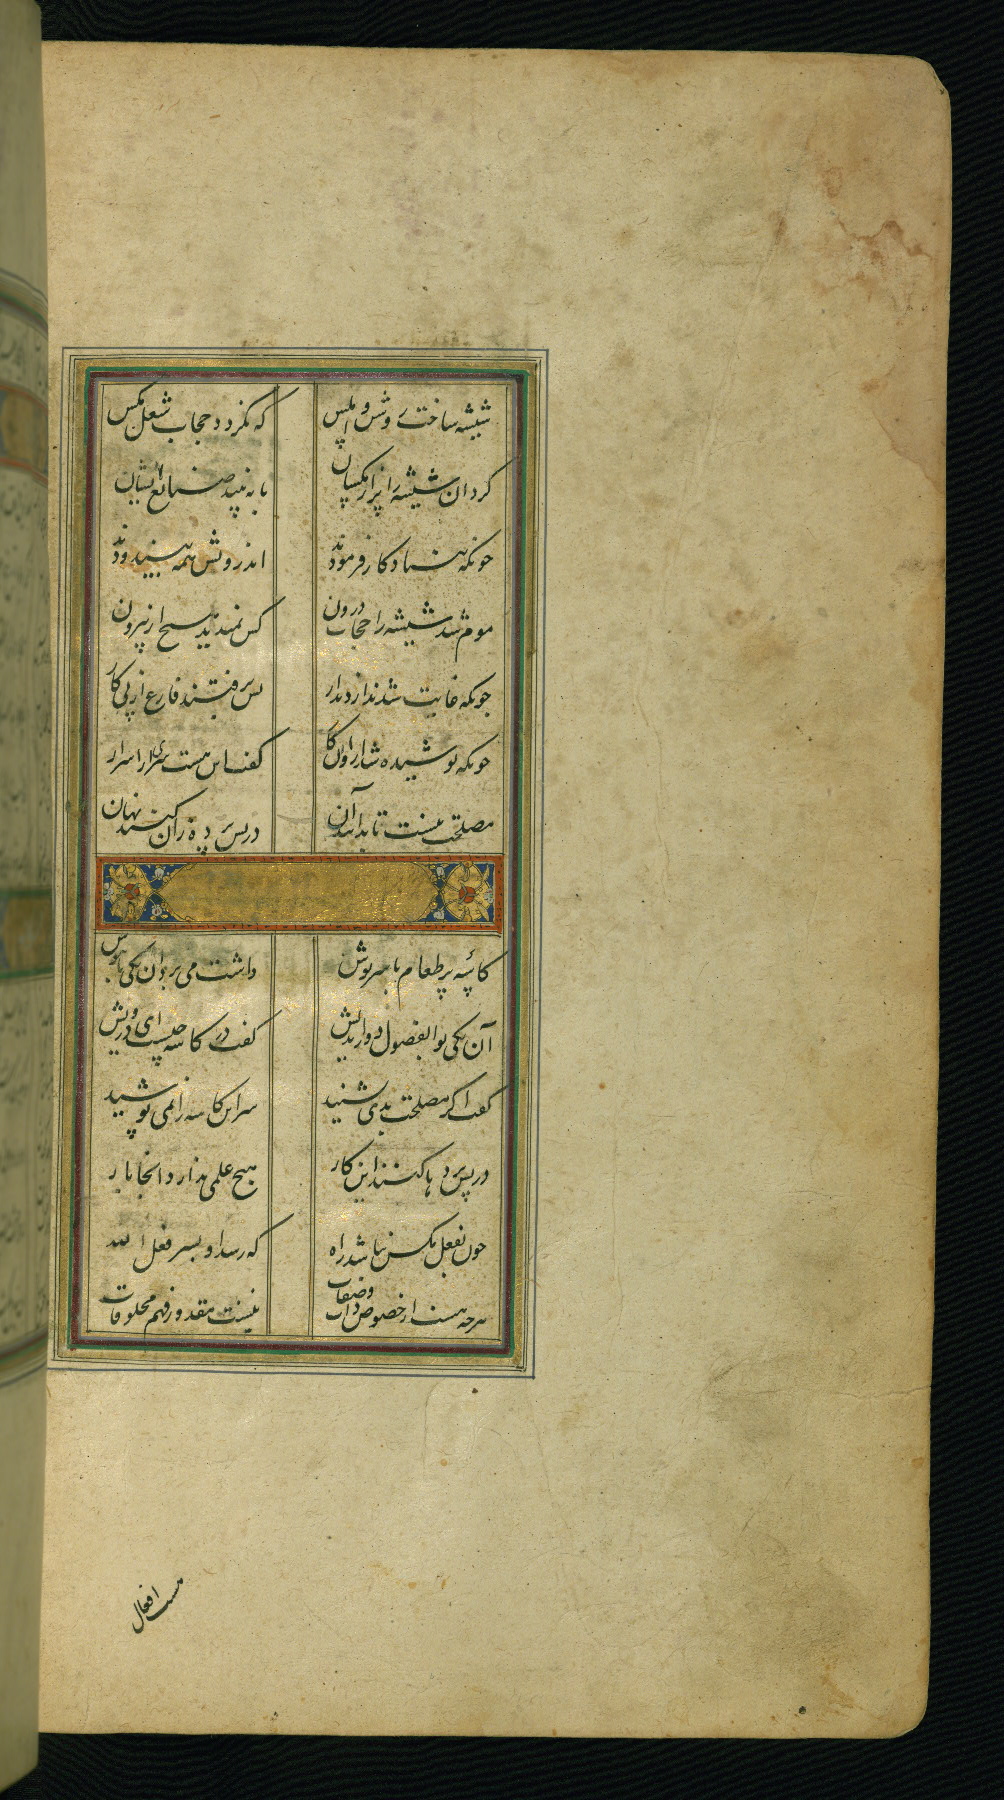 شیشه ساختی وش و املس که نکردد حجاب شغل مکس
کرد ان شیشه را پراز مکسان تا به بیند صنایع ایشان
چونکه بنهاد کار فرمودند اندرونش همه بیندودند
موم شد شیشه را حجاب درون کس نمیدید هیچ از بیرون
چونکه غایب شدند از دیدار پس برفتند فارغ از پی کار
چونکه پوشیده شد از اول کار کفت این هست سری از اسرار
مصلحت نیست تا بدانند آن در پس پرده زان کنند نهان
کاسه پر طعام با سرپوش داشت می برد آن یکی با هوش
آن یکی بوالفضول دور اندیش کفت در کاسه چیست ای درویش
کفت اکر مصلحت بدی شنید سر این کاسه را نمی پوشید
در پس پرده ها کنند این کار هیچ علمی ندارد آنجا بار
چون بفعل مکس نباشد راه که رسد او بسر فعل الله
هرچه هست از خصوص ذات و صفات نیست مقدور فهم مخلوقات
هست افعال